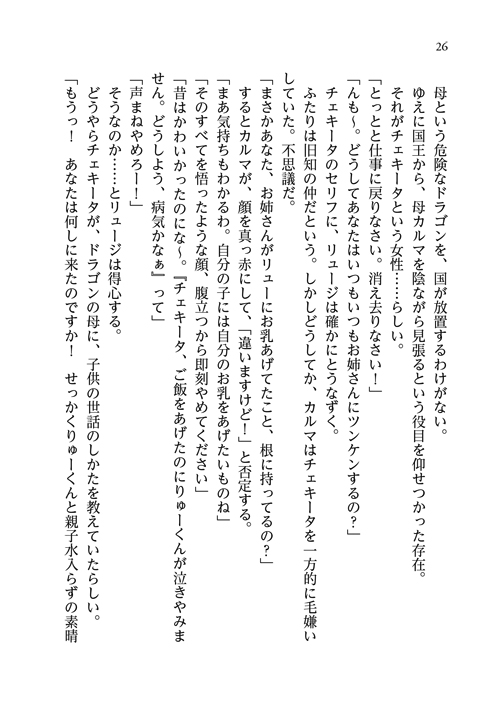 26
　母という危険なドラゴンを、国が放置するわけがない。
　ゆえに国王から、母カルマを陰ながら見張るという役目を仰せつかった存在。
　それがチェキータという女性……らしい。
「とっとと仕事に戻りなさい。消え去りなさい！」
「んも〜。どうしてあなたはいつもいつもお姉さんにツンケンするの？」
　チェキータのセリフに、リュージは確かにとうなずく。
　ふたりは旧知の仲だという。しかしどうしてか、カルマはチェキータを一方的に毛嫌い
していた。不思議だ。
「まさかあなた、お姉さんがリューにお乳あげてたこと、根に持ってるの？」
　するとカルマが、顔を真っ赤にして、「違いますけど！」と否定する。
「まあ気持ちもわかるわ。自分の子には自分のお乳をあげたいものね」
「そのすべてを悟ったような顔、腹立つから即刻やめてください」
「昔はかわいかったのにな〜。『チェキータ、ご飯をあげたのにりゅーくんが泣きやみま
せん。どうしよう、病気かなぁ』って」
「声まねやめろー！」
　そうなのか……とリュージは得心する。
　どうやらチェキータが、ドラゴンの母に、子供の世話のしかたを教えていたらしい。
「もうっ！　あなたは何しに来たのですか！　せっかくりゅーくんと親子水入らずの素晴